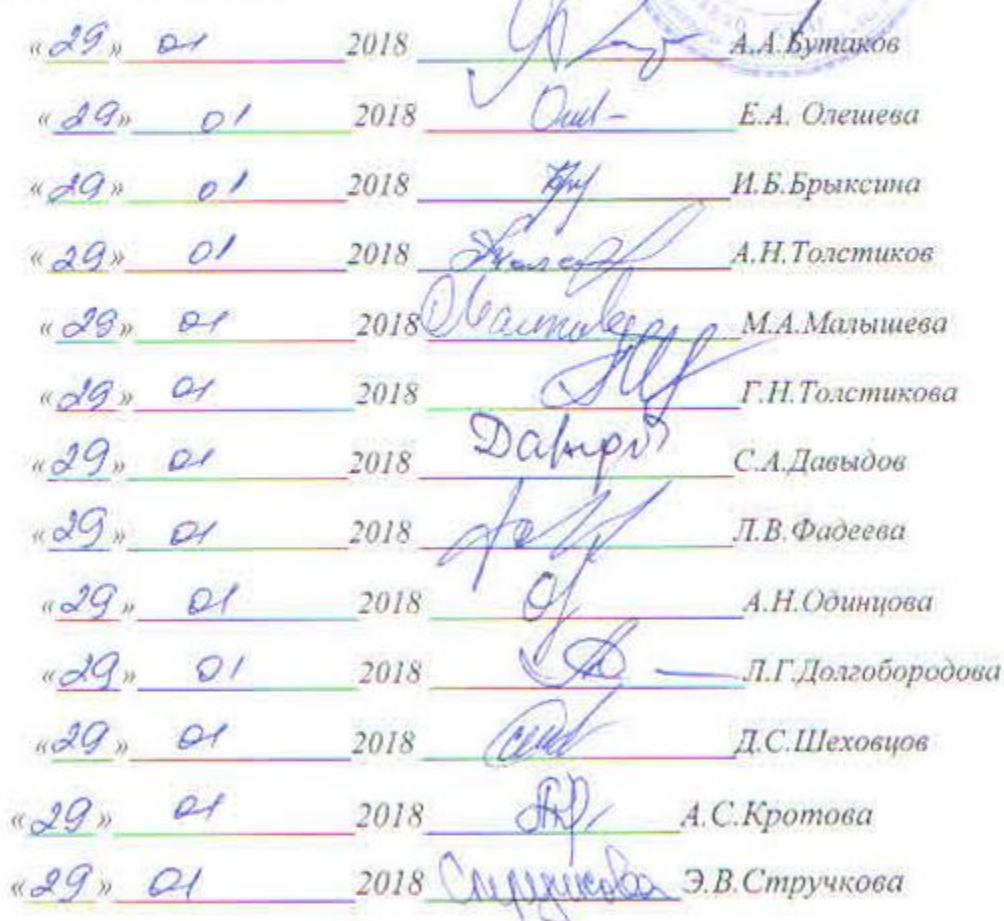 «29» 01 2018 А.А.Бутаков
«29» 01 2018 Е.А. Олешева
«29» 01 2018 И.Б.Брыксина
«29» 01 2018 А.Н.Толстиков
«29» 01 2018 М.А.Малышева
«29» 01 2018 Г.Н.Толстикова
«29» 01 2018 С.А.Давыдов
«29» 01 2018 Л.В.Фадеева
«29» 01 2018 А.Н.Одинцова
«29» 01 2018 Л.Г.Долгобородова
«29» 01 2018 Д.С.Шеховцов
«29» 01 2018 А.С.Кротова
«29» 01 2018 Э.В.Стручкова